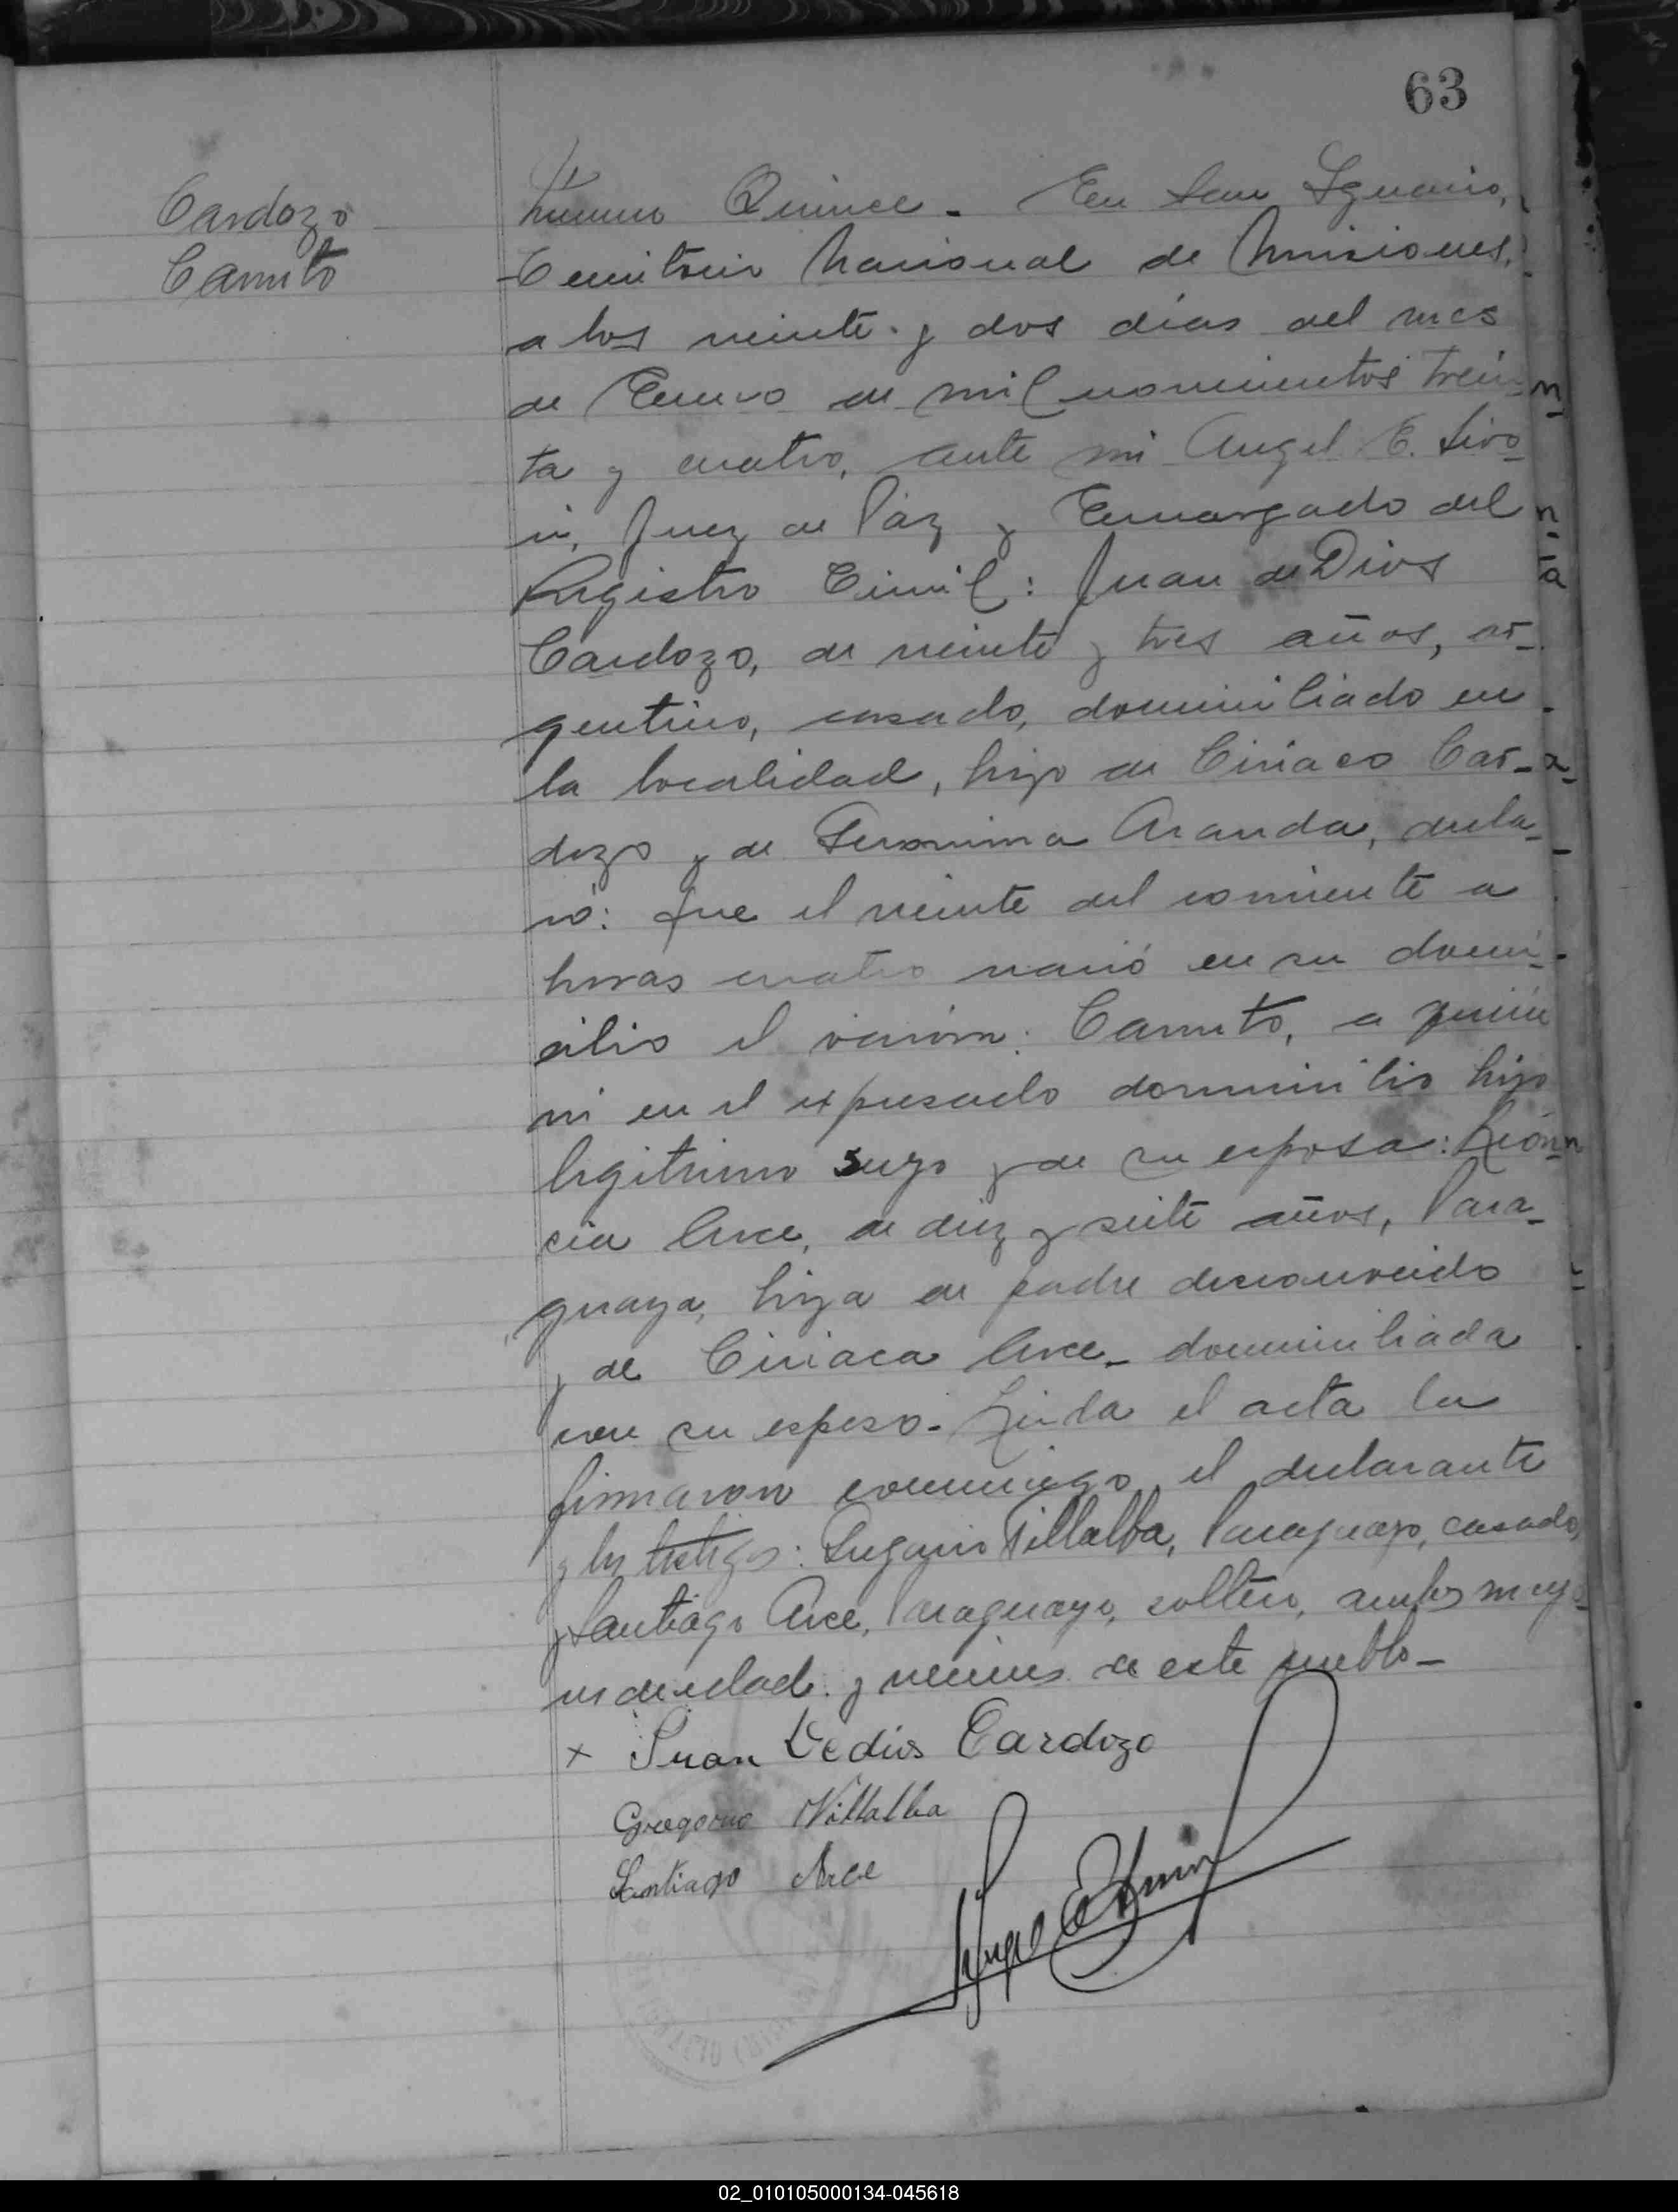 63
Cardozo
Canuto
Número Quince - En San Ignacio,
Territorio Nacional de Misiones,
a los veinte y dos días del mes
de Enero de mil novecientos trein-
ta y cuatro, ante mi Angel E.
Juez de Paz y Encargado del
Registro Civil: Juan de Dios
Cardozo, de veinte y tres años, ar-
gentino, casado, domiciliado en
la localidad, hijo de Ciriaco Car-
dozo y de Geronima Aranda, decla-
ró: que el veinte del corriente a
horas cuatro nació en su domi-
cilio el varón: Canuto, a quién
vi en el expresado domicilio hijo
legitimo suyo y de su esposa: León-
cia Arce, de diez y siete años, Para-
guaya, hija de padre desconocido
y de Ciriaca Arce - domiciliada
con su esposo. Leída el acta la
firmaron conmigo el declarante
y los testigos: Gregorio Villalba, Paraguayo, casado,
y Santiago Arce, Paraguayo, soltero, ambos mayo-
res de edad y vecinos de este pueblo -
x Juan Dedios Cardozo
Gregorio Villalba
Santiago Arce
Angel E
02_010105000134-045618